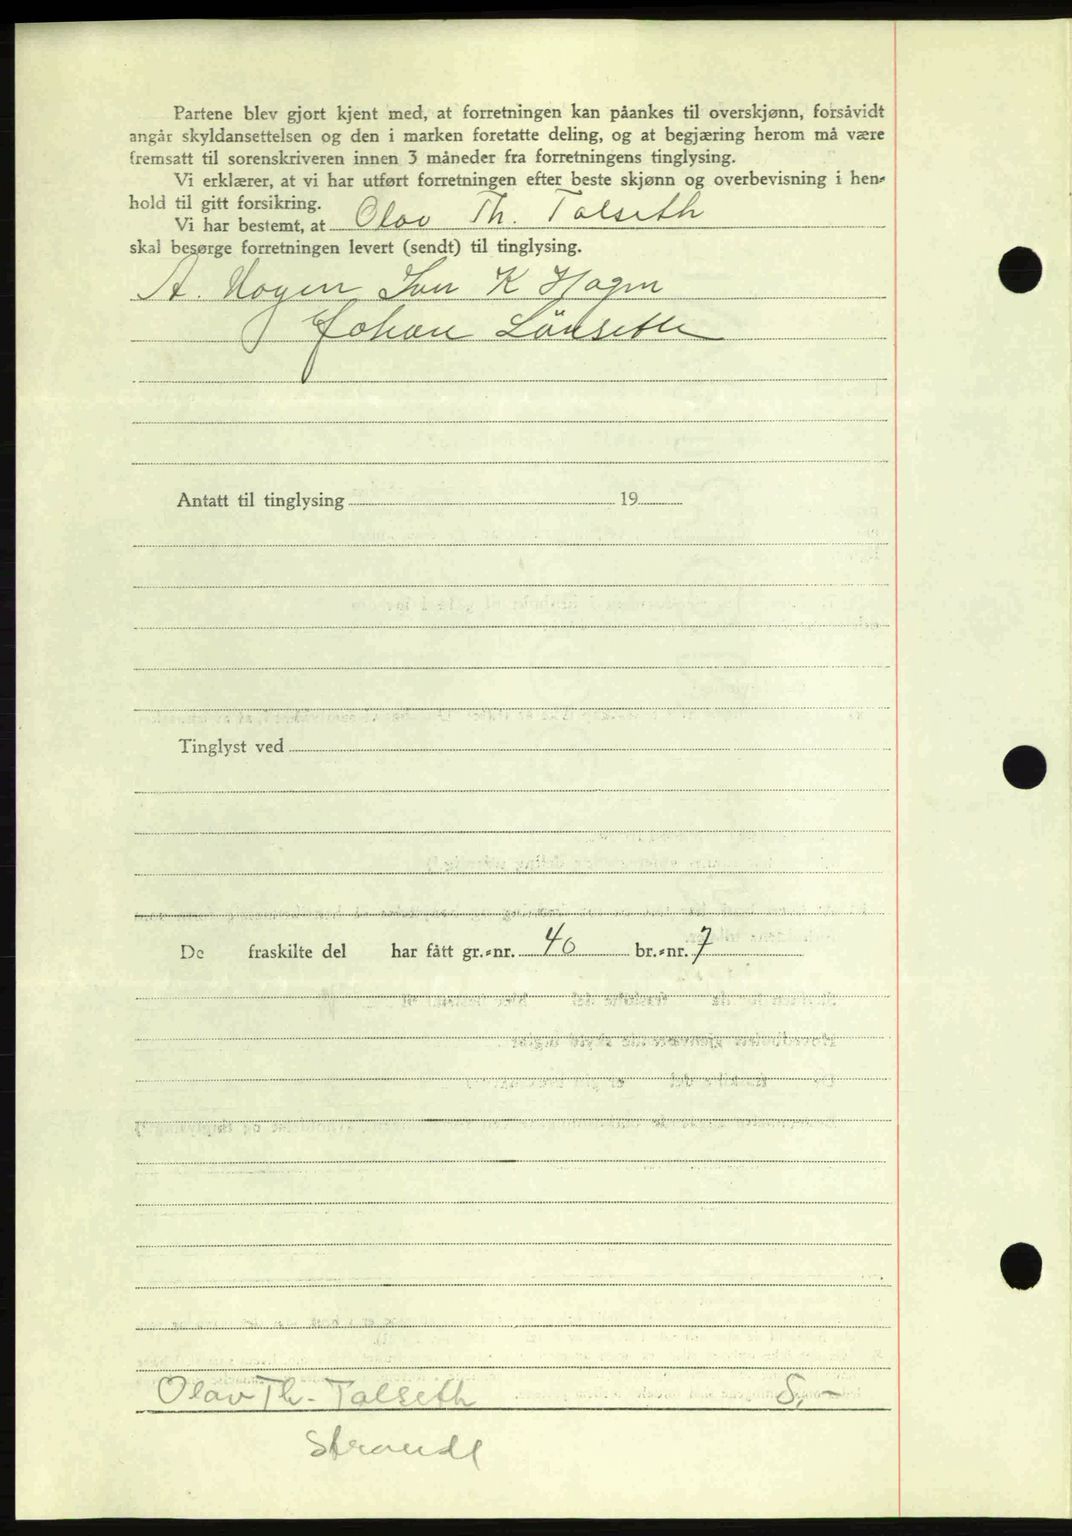 Partene blev gjort kjent med, at forretningen kan påankes til overskjønn, forsåvidt
angår skyldansettelsen og den i marken foretatte deling, og at begjæring herom må være
fremsatt til sorenskriveren innen 3 måneder fra forretningens tinglysing.
Vi erklærer, at vi har utført forretningen efter beste skjønn og overbevisning i hen-
hold til gitt forsikring.
Vi har bestemt, at Olav Th. Talseth
skal besørge forretningen levert (sendt) til tinglysing.
A. Hogen Iver K Hagen
Johan Lönseth
Antatt til tinglysing 19
Tinglyst ved
De fraskilte del har fått gr.-nr. 40 br.-nr. 7
Olav Th. Talseth 8,-